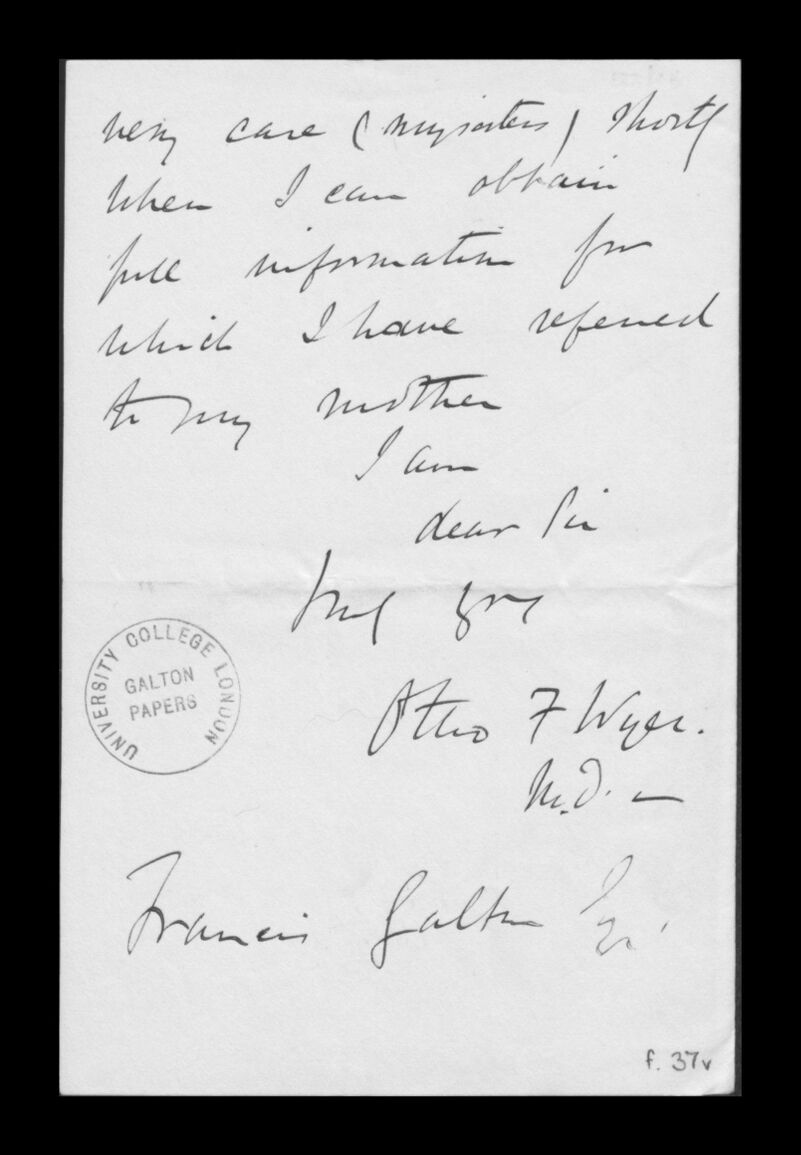 very case (my sisters) shortly
when I can obtain
full information for
which I have referred
to my mother
I am
dear Sir
truly yrs
Otho F Wyer.
M.D.
UNIVERSITY COLLEGE LONDON
GALTON
PAPERS
Francis Galton Esq.
f. 37v